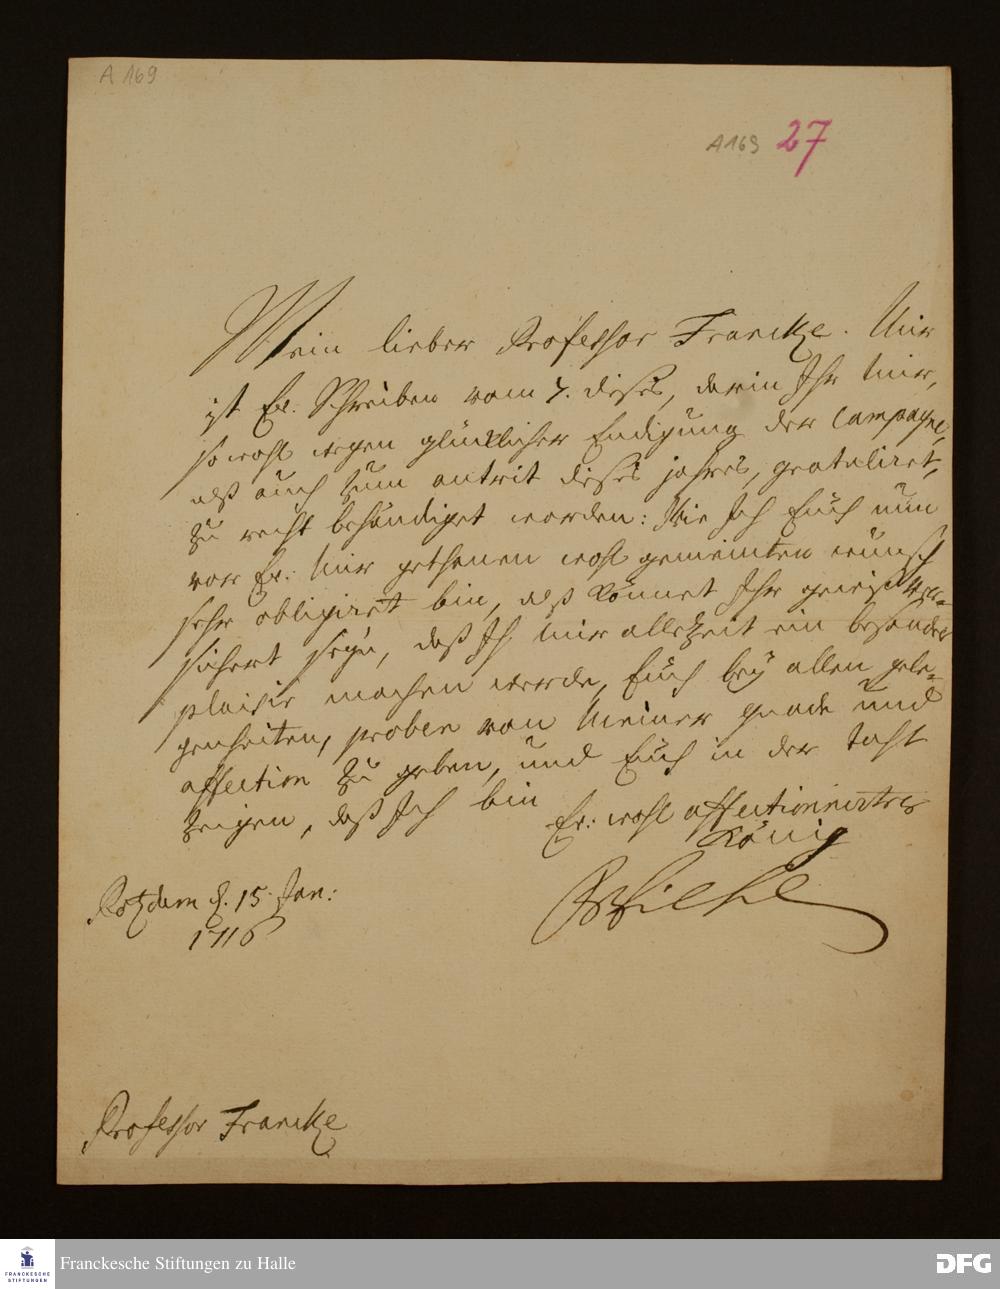 A 169
A 169 27
Mein lieber Professor Francke. Mir
ist Er. Schreiben vom 7. dieses, darin Ihr Mir,
so wohl wegen glücklicher Endigung der Campagne,
alß auch zum antrit dieses jahres, gratuliret,
zu recht behändiget worden: Wie Ich Euch nun
vor Er. Mir gethanen wohl gemeinten wünsch
sehr obligiret bin, alß könnet Ihr gewiß ver-
sichert seyn, daß Ich Mir allezeit ein besonder
plaisir machen werde, Euch bey allen gele-
genheiten, proben von Meiner gnade und
affection zu geben, und Euch in der taht
zeigen, daß Ich bin
Er: wohl affectionnirter
König
Potzdam d. 15 Jan:
1716
Professor Francke
FRANCKESCHE
STIFTUNGEN
Franckesche Stiftungen zu Halle
DFG